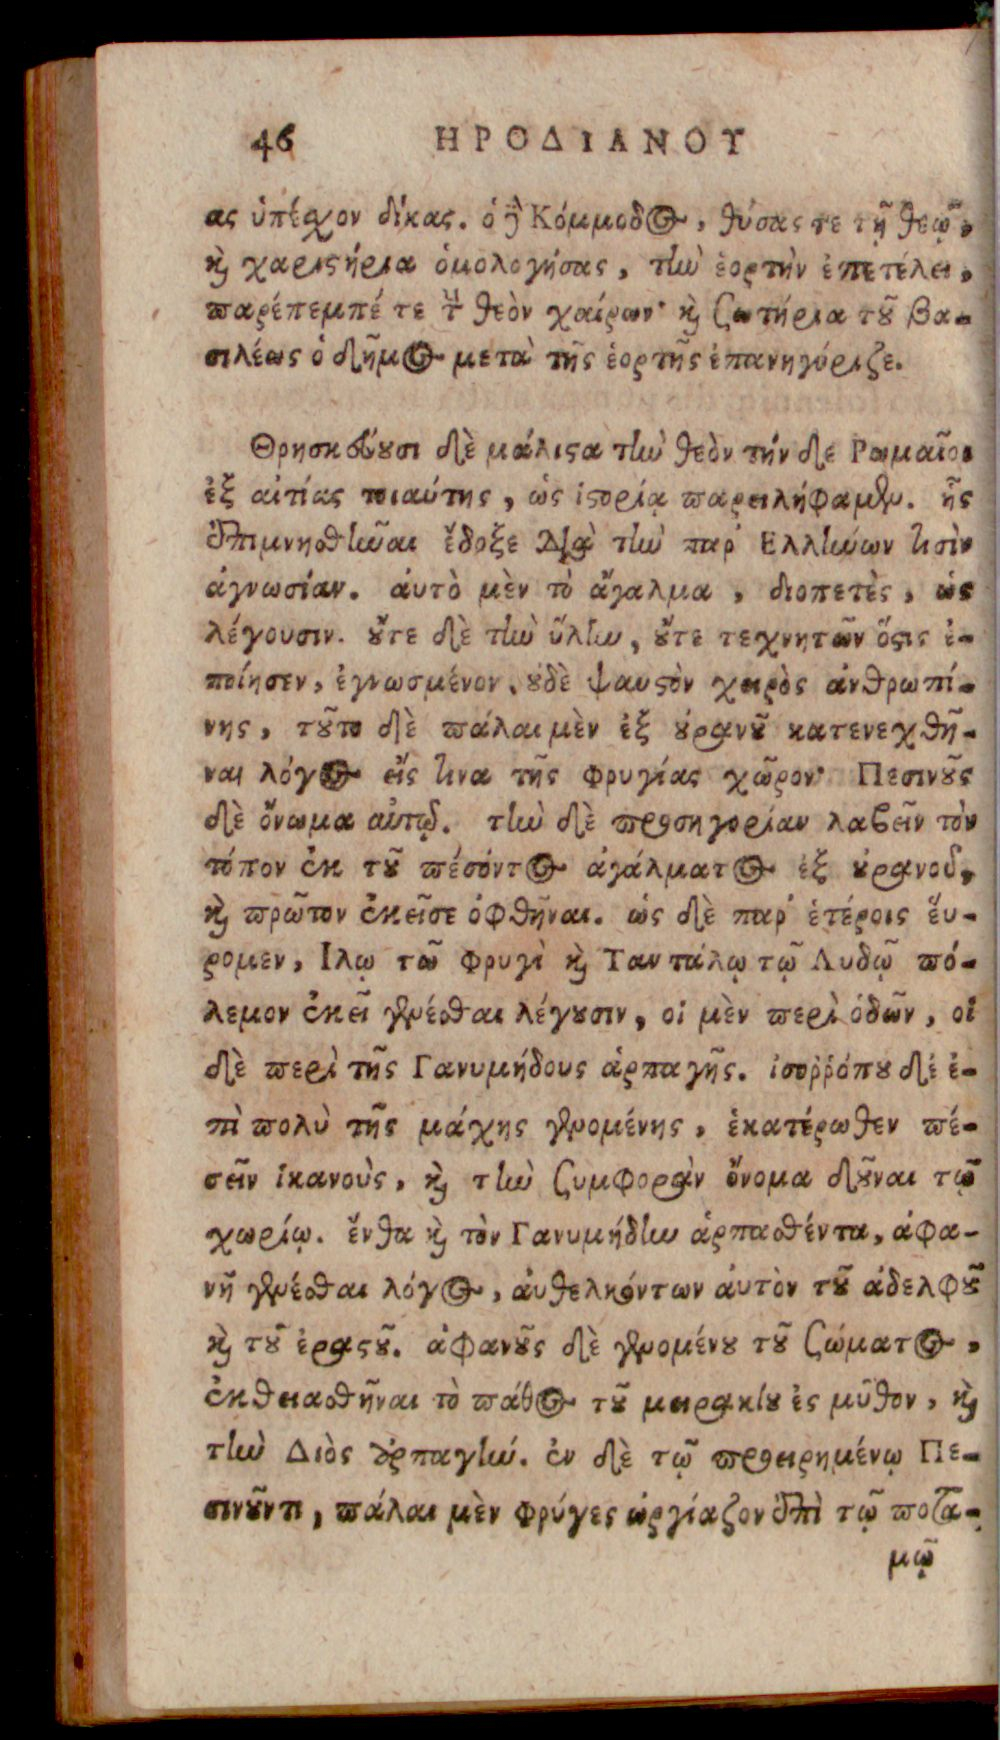 46 ΗΡΟΔΙΑΝΟΥ
ας ὑπέσχον δίκας. ὁ δὲ Κόμμοδος, θύσας τε τῇ θεῷ,
καὶ χαριστήρια ὁμολογήσας, τὴν ἑορτὴν ἐπετέλει,
παρέπεμπέ τε τὴν θεὸν χαίρων· καὶ σωτήρια τοῦ βα-
σιλέως ὁ δῆμος μετὰ τῆς ἑορτῆς ἐπανηγύριζε.
Θρησκεύουσι δὲ μάλιστα τὴν θεὸν τήν δε Ρωμαῖοι
ἐξ αἰτίας τοιαύτης, ὡς ἱστορίᾳ παρειλήφαμεν. ἧς
ἐπιμνησθῆναι ἔδοξε διὰ τὴν παρ' Ελλήνων τισὶν
ἀγνωσίαν. ἀυτὸ μὲν τὸ ἄγαλμα, διοπετὲς, ὡς
λέγουσιν. οὔτε δὲ τὴν ὕλην, οὔτε τεχνητῶν ὅστις ἐ-
ποίησεν, ἐγνωσμένον, οὐδὲ ψαυστὸν χειρὸς ἀνθρωπί-
νης, τοῦτο δὲ πάλαι μὲν ἐξ οὐρανοῦ κατενεχθῆ-
ναι λόγος εἴς τινα τῆς Φρυγίας χῶρον· Πεσινοῦς
δὲ ὄνωμα αὐτῷ. τὴν δὲ προσηγορίαν λαβεῖν τὸν
τόπον ἐκ τοῦ πέσόντος ἀγάλματος ἐξ οὐρανοδ,
καὶ πρῶτον ἐκεῖσε ὀφθῆναι. ὡς δὲ παρ' ἑτέροις ἕυ-
ρομεν, Ιλῳ τῶ Φρυγὶ καὶ Ταντάλῳ τῷ Λυδῷ πό-
λεμον ἐκεῖ γενέσθαι λέγουσιν, οἱ μὲν περὶ ὁδῶν, οἱ
δὲ περὶ τῆς Γανυμήδους ἁρπαγῆς. ἰσοῤῥόπου δὲ ἐ-
πὶ πολὺ τῆς μάχης γενομένης, ἑκατέρωθεν πέ-
σεῖν ἱκανοὺς, καὶ τὴν συμφορὰν ὄνομα δοῦναι τῷ
χωρίῳ. ἔνθα καὶ τὸν Γανυμήδην ἁρπασθέντα, ἀφα-
νῆ γενέσθαι λόγος, ἀνθελκόντων ἀυτὸν τοῦ ἀδελφοῦ
καὶ τοῦ ἐραστοῦ. ἀφανοῦς δὲ γενομένου τοῦ σώματος,
ἐκθειασθῆναι τὸ πάθος τοῦ μειρακίου ἐς μῦθον, καὶ
τὴν Διὸς ἁρπαγήν. ἐν δὲ τῷ προειρημένῳ Πε-
σινοῦντι, πάλαι μὲν Φρύγες ὠργίαζον ἐπὶ τῷ ποτα-
μῷ